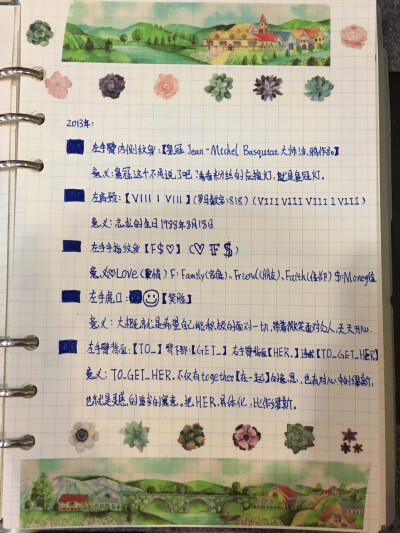 2013年:
左手臂内侧纹身:【皇冠 Jean-Michel Basquiat 大师涂鸦作品】
意义:皇冠这个不用说了吧 看看粉丝的应援灯,就是皇冠灯。
左肩颈:【VIII I VIII】(罗马数字:818) (VIII VIII VIII I VIII)
意义:志龙的生日1988年8月18日
左手手指纹身【F$♡】 (♡ F $)
意义:♡Love(爱情) F:Family(家庭)、Friend(朋友)、Faith(信仰) $:Money(金
左手虎口:☺【笑脸】
意义:大概也就是希望自己能积极的面对一切,带着微笑面对众人,天天开心。
左手臂背面:【TO_】 臂下部:【GET_】 右手臂背面【HER.】连成【TO_GET_HER】
意义:TO_GET_HER.不仅有together【在一起】的意思,也有对心中的缪斯,
也就是灵感的追求的寓意。把HER.具体化,比作缪斯。